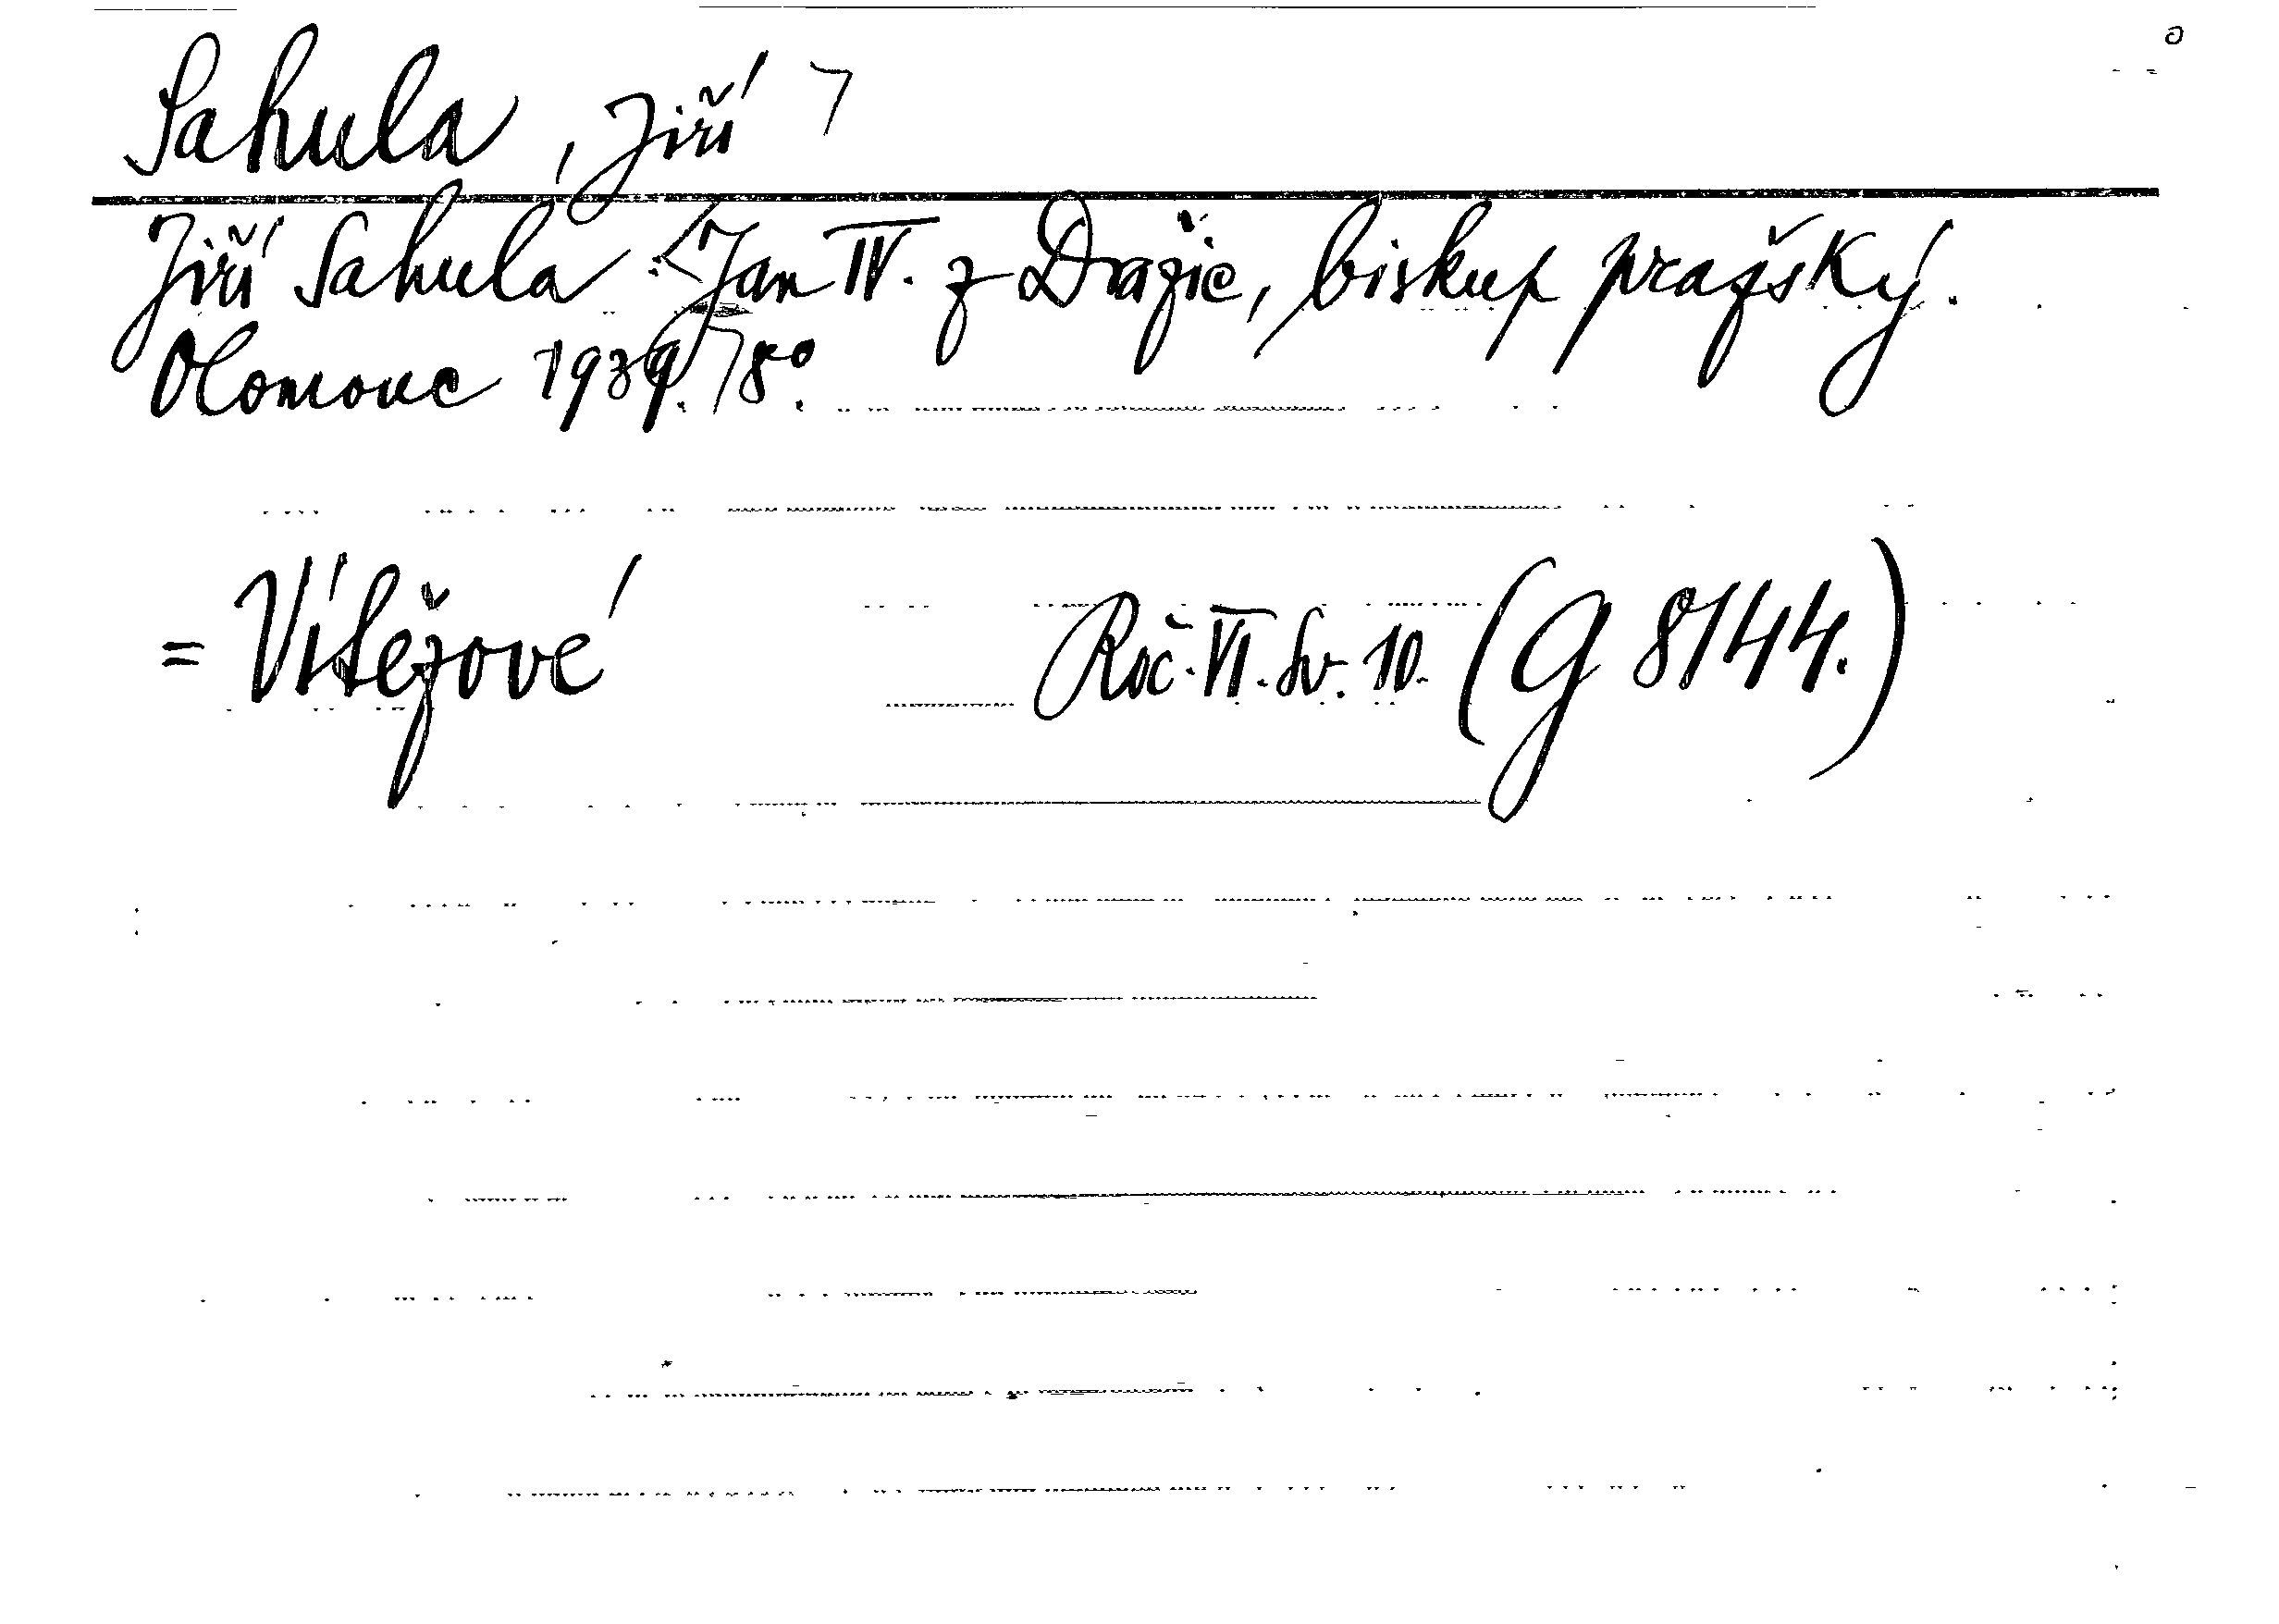 Sahula, Jiří
Jiří Sahula: Jan IV. z Dražic, biskup pražský.
Olomouc 1939. 8°.
= Vítězové Roč. VI. Sv. 10. (G 8144.)